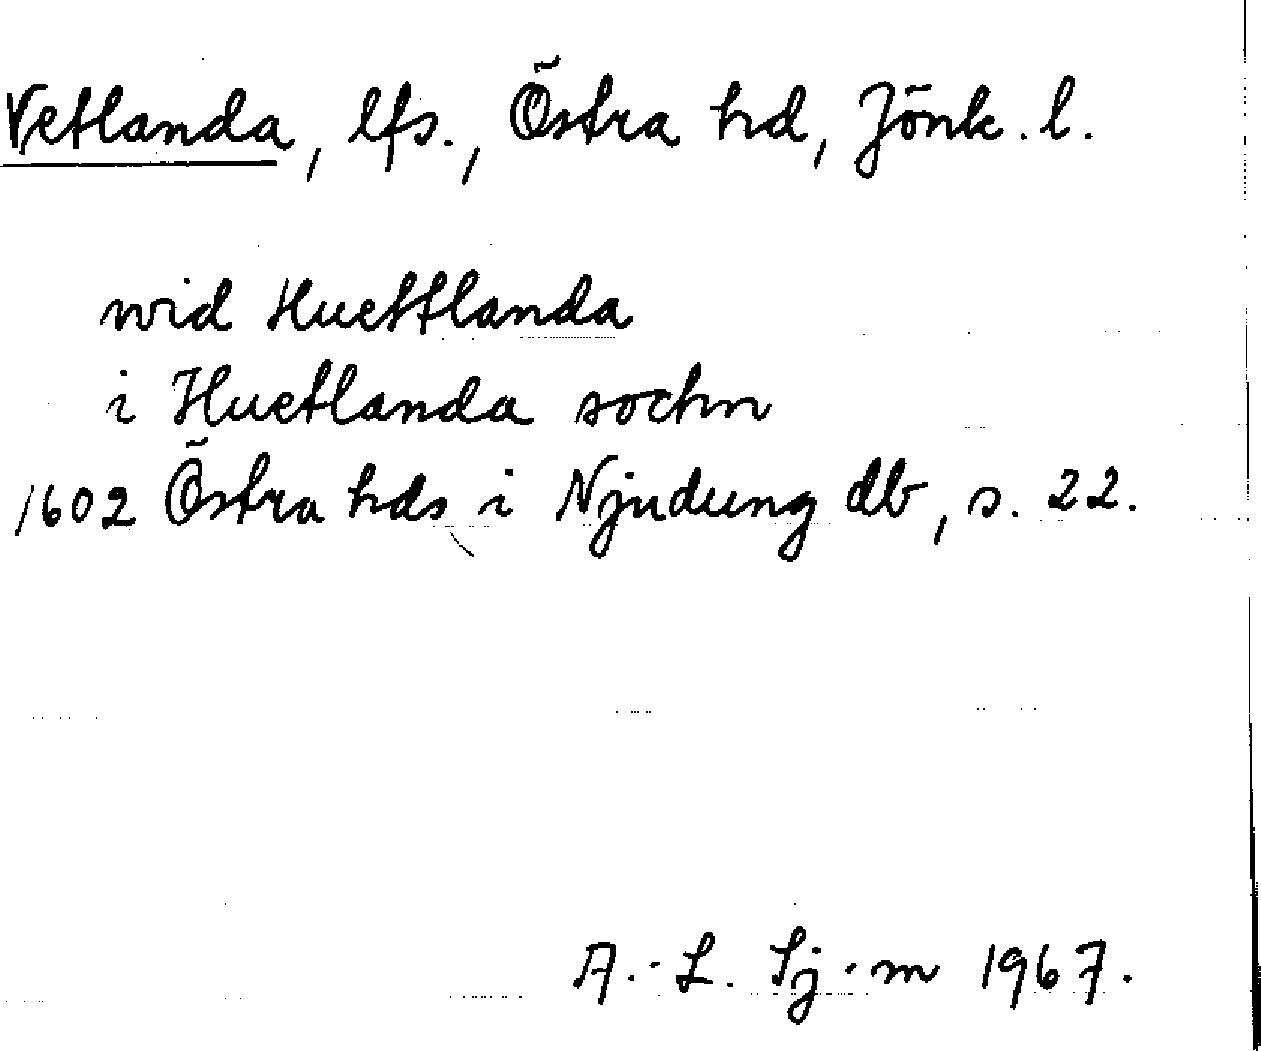 Vetlanda, lfs., Östra hd, Jönk. l.
wid Huettlanda
i Huetlanda sochn
1602 Östra hds i Njudung db, s. 22.
A.-L. Sj-m 1967.